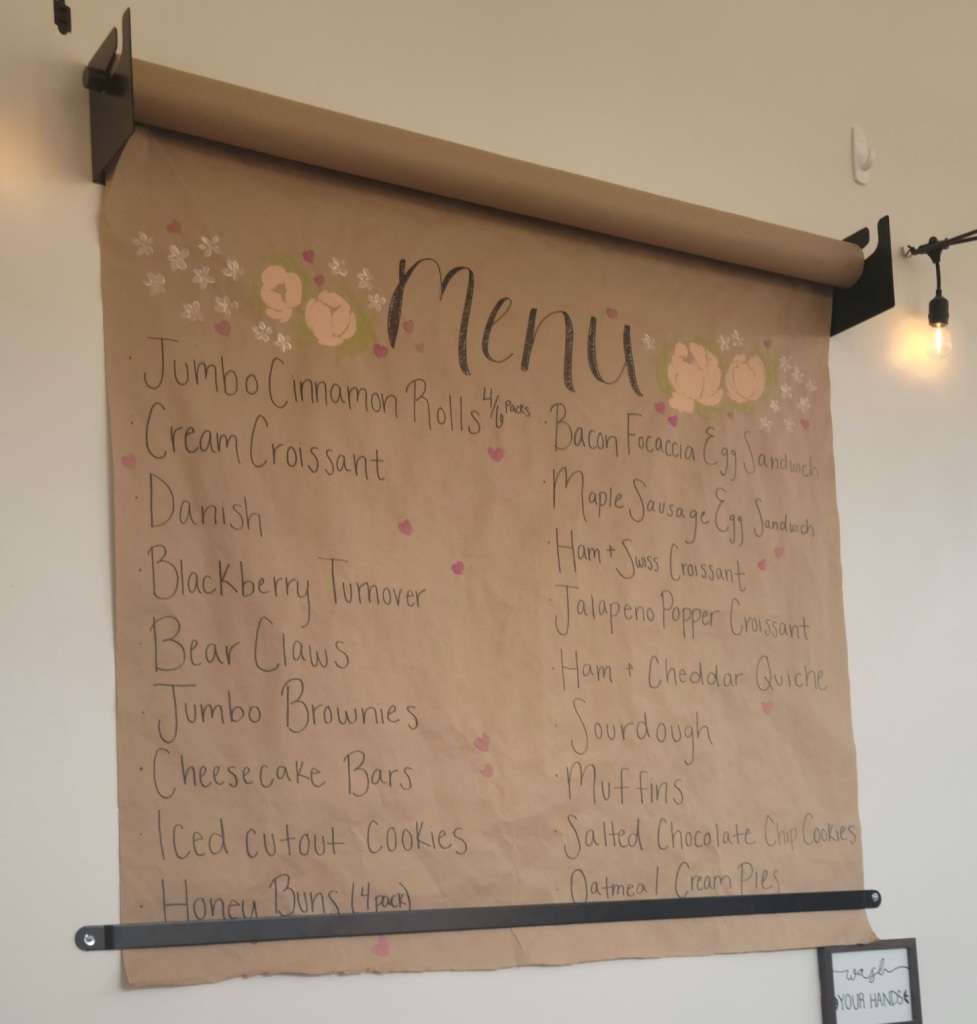 Menu
Jumbo Cinnamon Rolls 4/6 Packs
Cream Croissant
Danish
Blackberry Turnover
Bear Claws
Jumbo Brownies
Cheesecake Bars
Iced cutout Cookies
Honey Buns (4pack)
Bacon Focaccia Egg Sandwich
Maple Sausage Egg Sandwich
Ham + Swiss Croissant
Jalapeno Popper Croissant
Ham + Cheddar Quiche
Sourdough
Muffins
Salted Chocolate Chip Cookies
Oatmeal Cream Pies
wash
YOUR HANDS